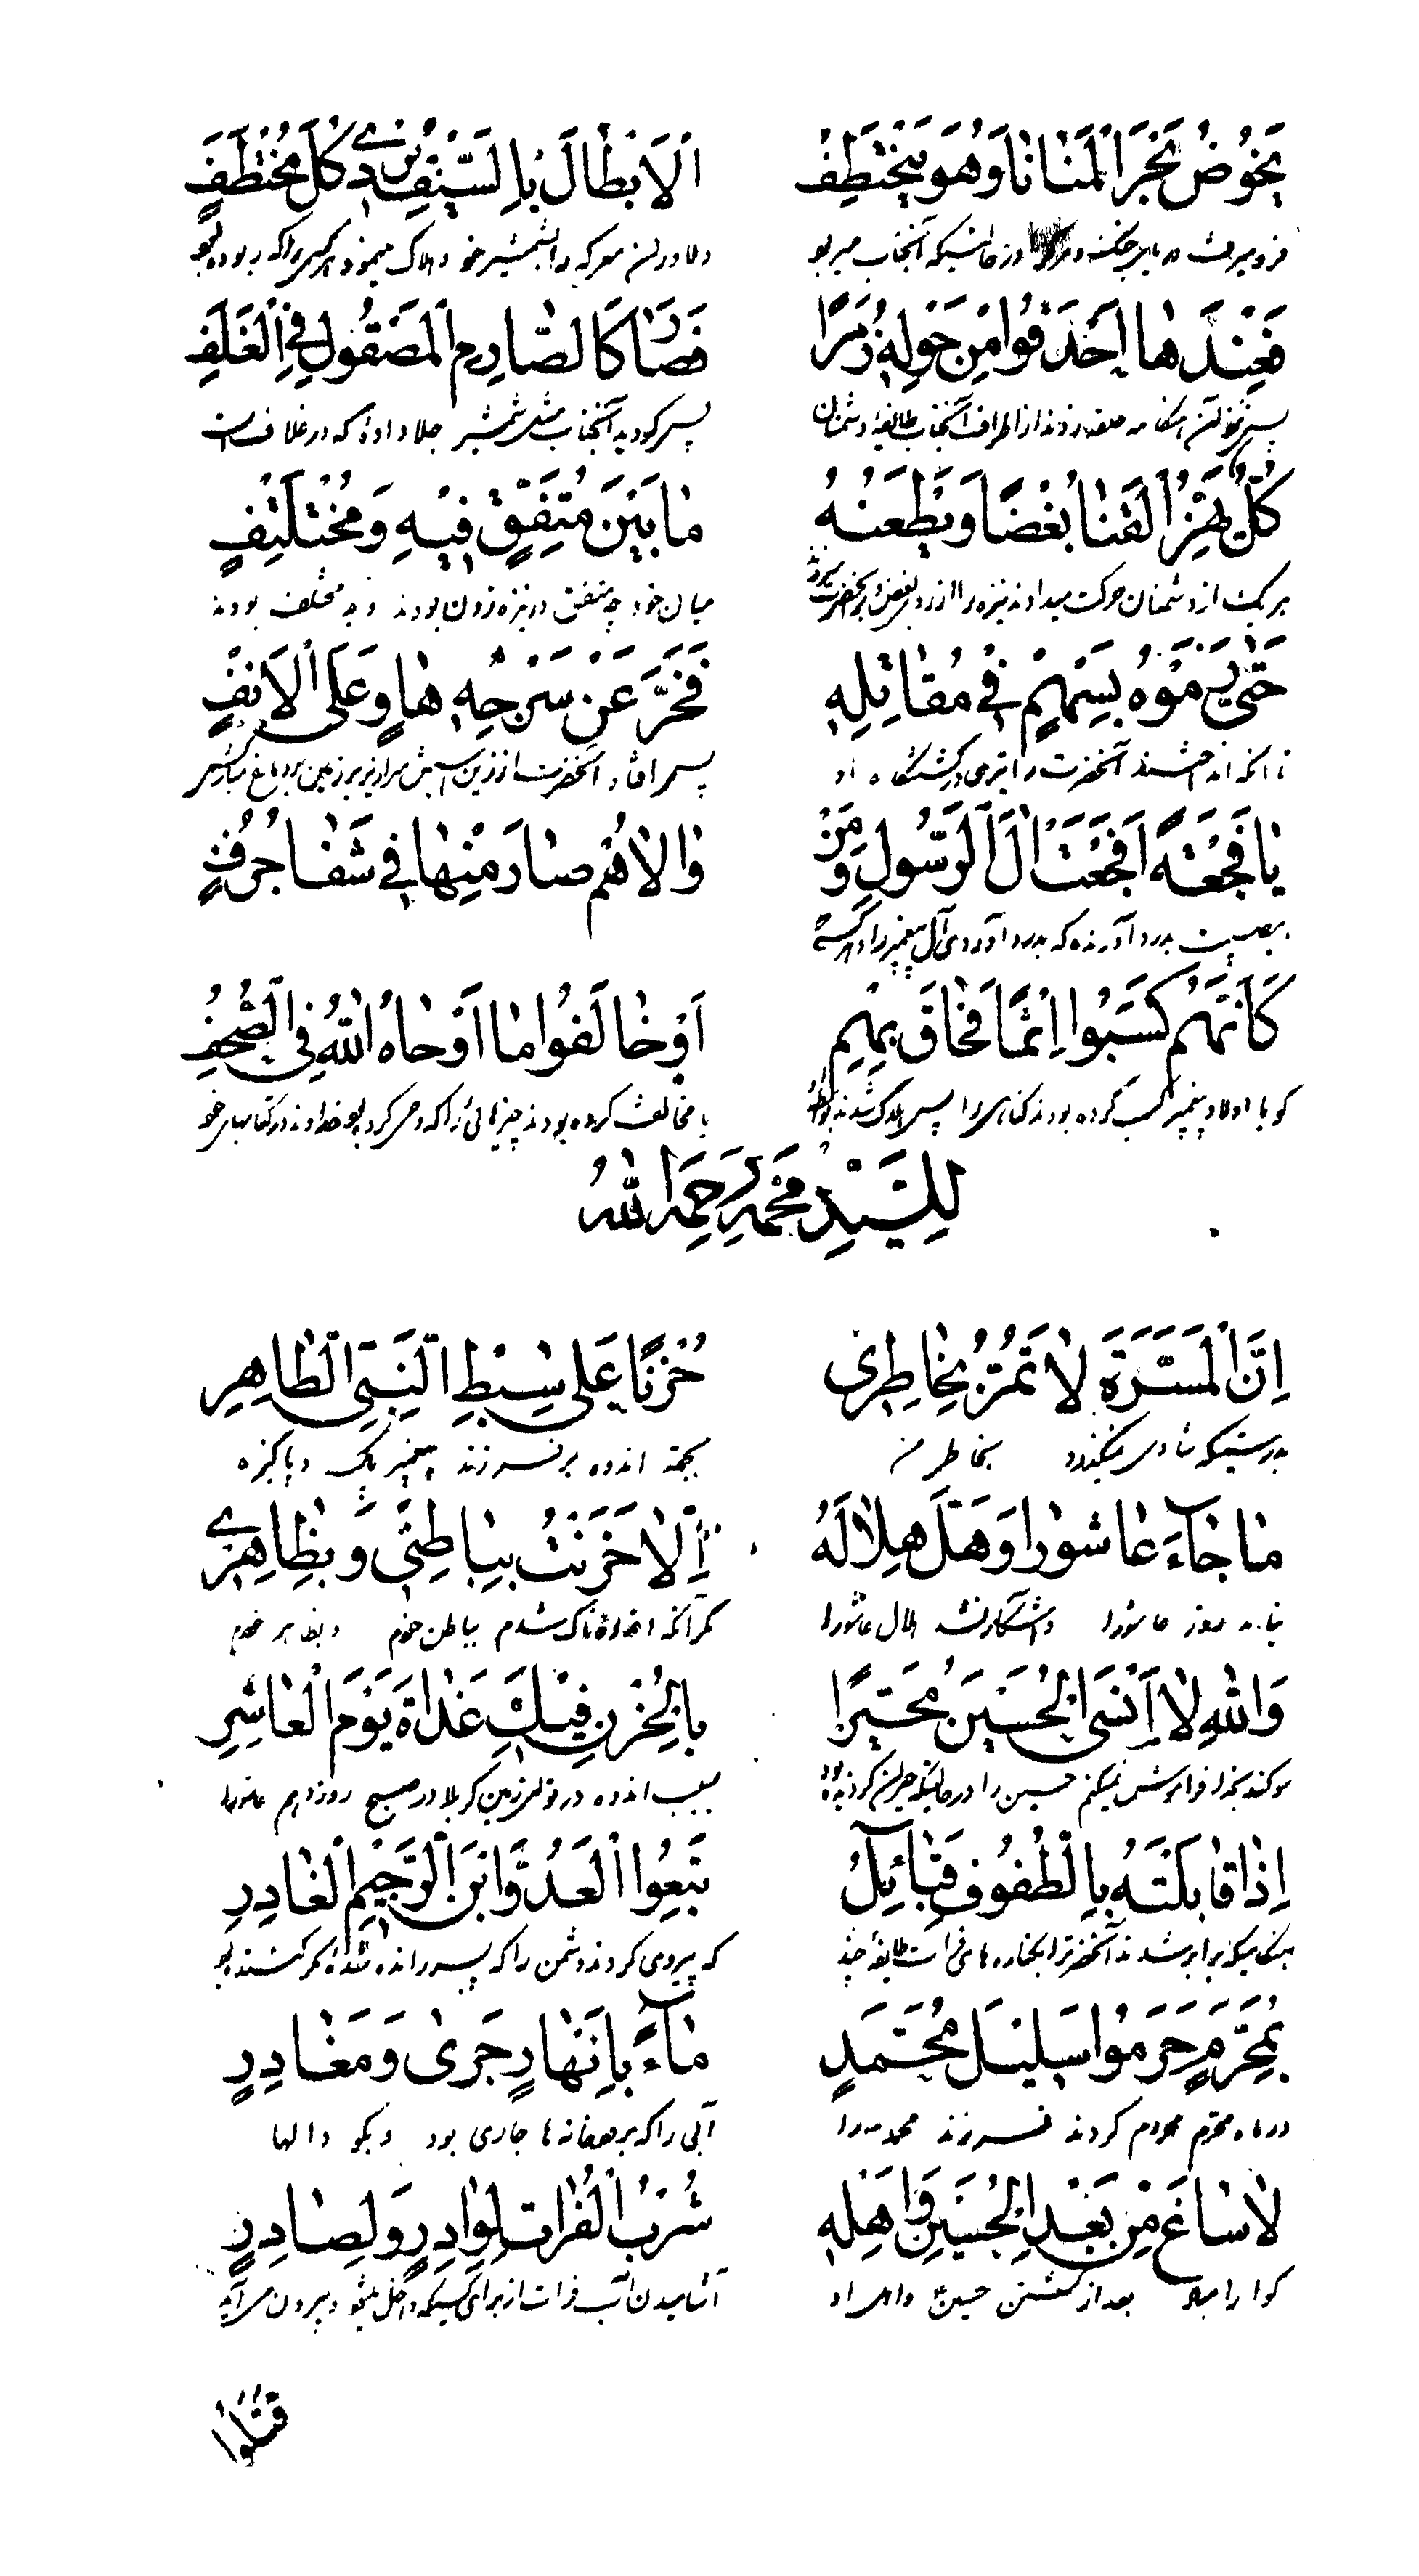 يَخُوضُ بَحْرَ الْمَنَايَا وَهُوَ يَخْتَطِفُ الْاَبْطَالَ بِالسَّيْفِ يُرْدِي كُلَّ مُخْتَطَفٍ
فرو میرفت در دریای جنک در حالتیکه آنجناب میربود دلاوران معرکه را بشمشیر خود هلاک مینمود هر کس را که ربوده بود
فَعِنْدَهَا اَحْدَقُوا مِنْ حَوْلِهِ زُمَرًا فَصَارَ كَالصَّارِمِ الْمَصْقُولِ فِي الْغَلَفِ
پس در آن هنکام حلقه زدند از اطراف آنجناب طایفه دشمنان پس کردید آنجناب مثل شمشیر جلا داده که در غلاف است
كُلٌّ يَهُزُّ الْقَنَا بُغْضًا وَيَطْعَنُهُ مَا بَيْنَ مُتَّفِقٍ فِيهِ وَمُخْتَلِفٍ
هر یک از دشمنان حرکت میدادند نیزه را از روی بغض و بر آنحضرت میزدند میان خود چه متفق در نیزه زدن بودند و چه مختلف بودند
حَتّٰى رَمَوْهُ بِسَهْمٍ فِي مَقَاتِلِهِ فَخَرَّ عَنْ سَرْجِهِ هَاوٍ عَلَى الْاَنِفِ
تا آنکه انداختند آنحضرت را تیری در کشتنکاه او پس افتاد آنحضرت از زین اسبش سرازیر بر زمین بر دماغ مبارکش
يَا فَجْعَةً اَفْجَعَتْ اٰلَ الرَّسُولِ وَمَنْ وَالَاهُمُ صَارَ مِنْهَا فِي شَفَا جُرُفٍ
مصیبت بدرد آورنده که بدرد آوردی آل پیغمبر را و هر کسی
كَاَنَّهُمْ كَسَبُوا اِثْمًا فَحَاقَ بِهِمْ اَوْ خَالَفُوا مَا اَوْحَاهُ اللّٰهُ فِي الصُّحُفِ
کویا اولاد پیغمبر کسب کرده بودند کناهی را پس هلاک شدند یا مخالفت کرده بودند چیزهائی را که وحی کرده بود خداوند در کتابهای خود
لِلسَّيِّدِ مُحَمَّد رَحِمَهُ اللّٰهُ
اِنَّ الْمَسَرَّةَ لَا تَمُرُّ بِخَاطِرِي حُزْنًا عَلٰى سِبْطِ النَّبِيِّ الطَّاهِرِ
بدرستیکه شادی نمیکذرد بخاطر من بجهة اندوه بر فرزند پیغمبر پاک و پاکیزه
مَا جَاءَ عَاشُورَا وَهَلَّ هِلَالُهُ اِلَّا حَزِنْتُ بِبَاطِنِي وَبِظَاهِرِي
نیامد روز عاشورا و آشکار نشد هلال عاشورا مکر آنکه اندوهناک شدم بباطن خودم و بظاهر خودم
وَاللّٰهِ لَا اَنْسَى الْحُسَيْنَ مُحَيَّرًا بِالْحُزْنِ فِيكِ غَدَاةَ يَوْمَ الْعَاشِرِ
سوکند بخدا فراموش نمیکنم حسین را در حالتیکه حیران کرده بود بسبب اندوه در تو ای زمین کربلا در صبح روز دهم عاشورا
اِذَا قَابَلَتْهُ بِالطُّفُوفِ قَبَائِلُ تَبِعُوا الْعَدُوَّ ابْنَ الرَّجِيمِ الْغَادِرِ
هنکامیکه برابر شدند آنحضرت را بکناره های فرات طایفه چند که پیروی کردند دشمن را که پسر رانده شده مکر کننده بود
بِمُحَرَّمٍ حَرَمُوا سَلِيلَ مُحَمَّدٍ مَاءً بِاَنْهَارٍ جَرٰى وَمَغَادِرٍ
در ماه محرم محروم کردند فرزند محمد را آبی را که برودخانه ها جاری بود و بکودالها
لَا سَاغَ مِنْ بَعْدِ الْحُسَيْنِ وَاَهْلِهِ شُرْبُ الْفُرَاتِ لِوَارِدٍ وَلِصَادِرٍ
کوارا مباد بعد از کشتن حسین و اهل او آشامیدن آب فرات از برای کسیکه داخل میشود و بیرون می آید
قَتَلُوا